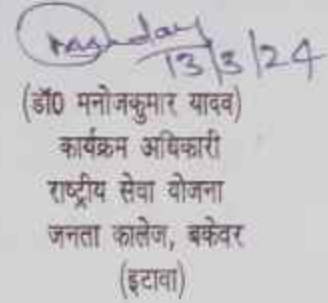 13/3/24
(डॉ0 मनोजकुमार यादव)
कार्यक्रम अधिकारी
राष्ट्रीय सेवा योजना
जनता कालेज, बकेवर
(इटावा)